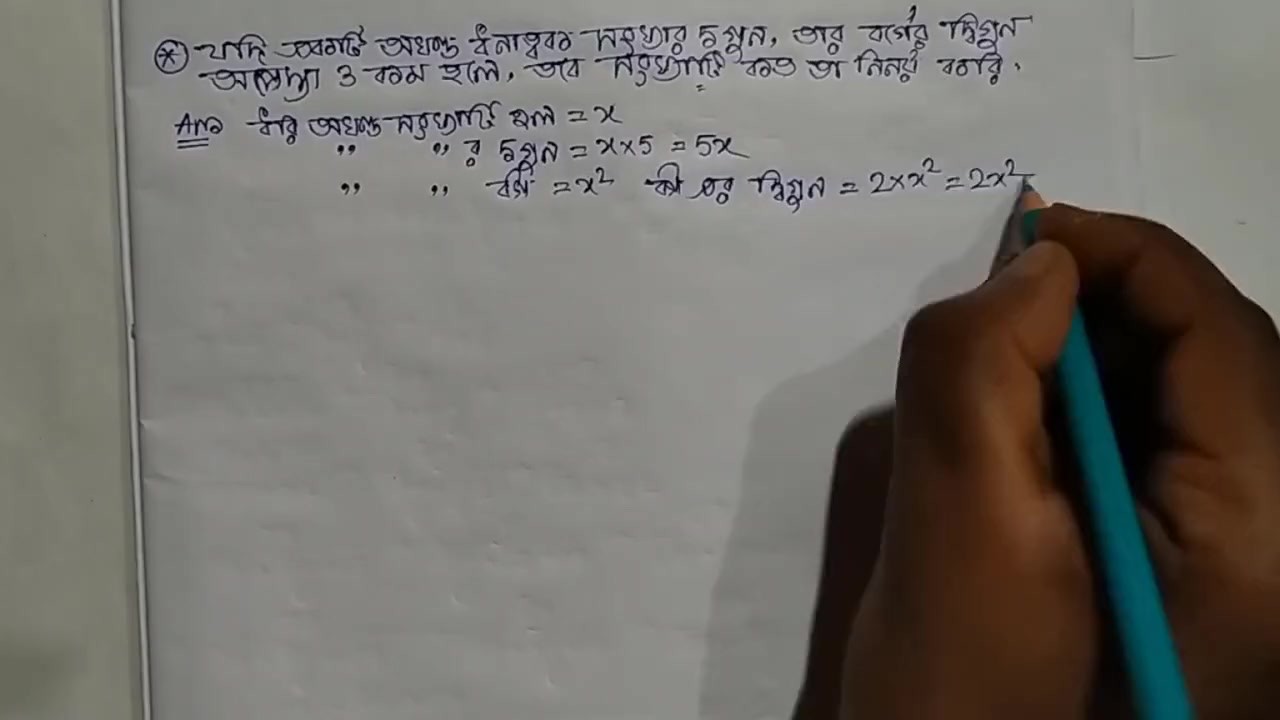 * যদি একটি অখণ্ড ধনাত্মক সংখ্যার ৫গুন, তার বর্গের দ্বিগুন
অপেক্ষা 3 কম হলে, তবে সংখ্যাটি কত তা নির্নয় করি.
Ans ধরি অখণ্ড সংখ্যাটি হল = x
” ” র ৫গুন = x×5 = 5x
” ” বর্গ = x² বর্গ এর দ্বিগুন = 2×x² = 2x²